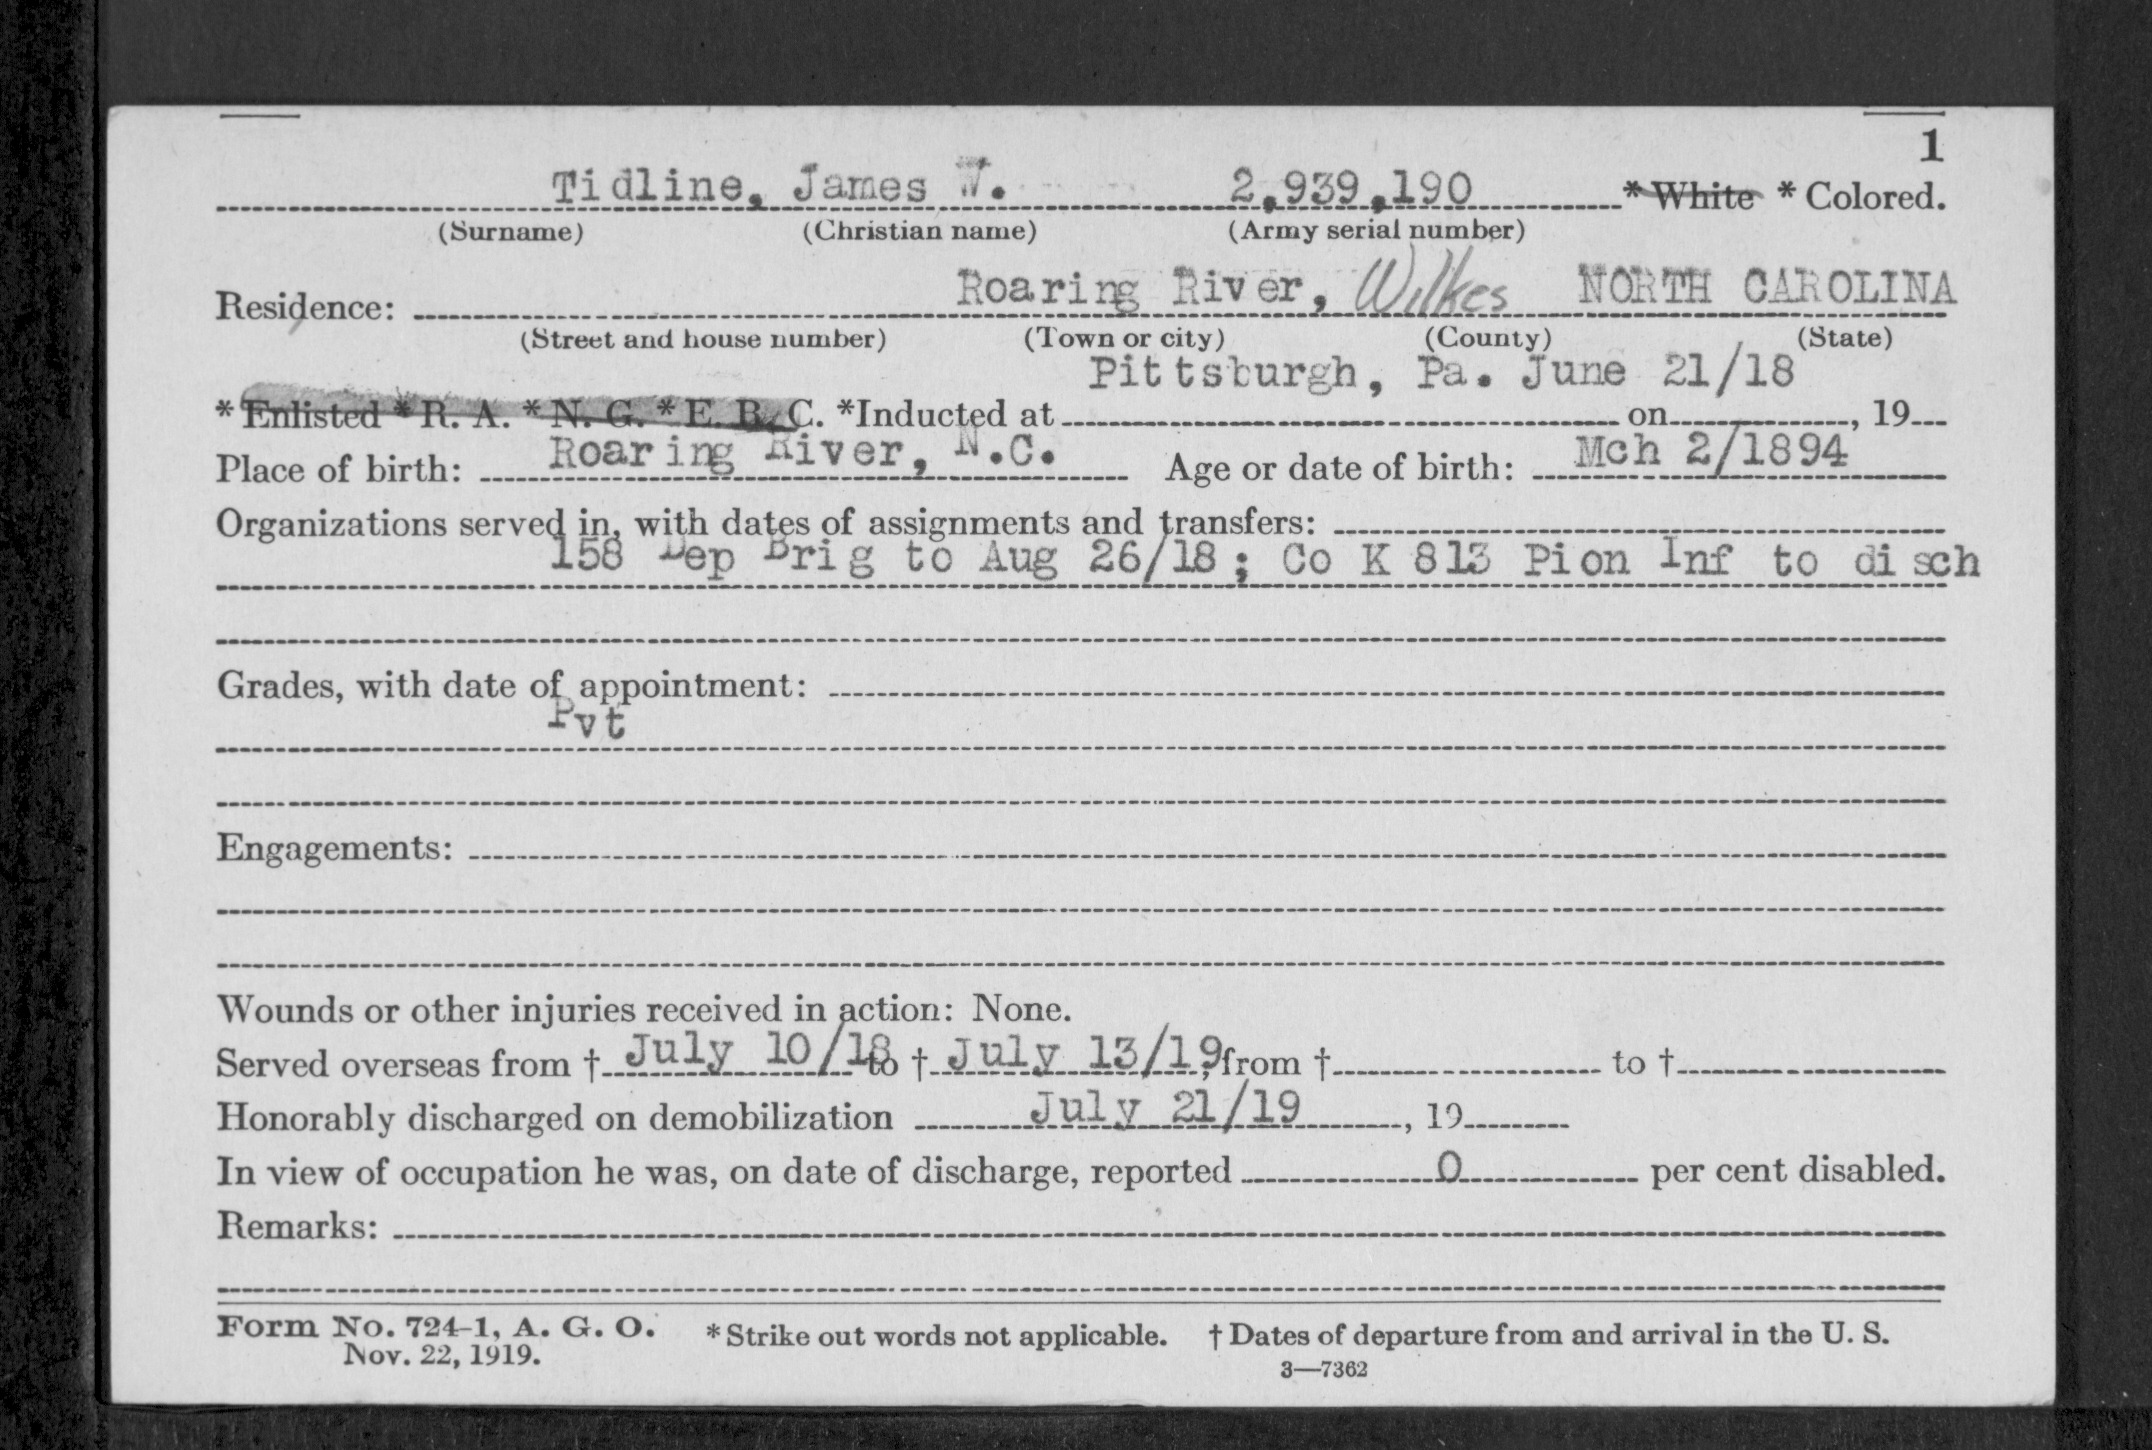 1
Tidline, James W. 2,939,190 * White * Colored.
(Surname) (Christian name) (Army serial number)
Residence: Roaring River, Wilkes NORTH CAROLINA
(Street and house number) (Town or city) (County) (State)
Pittsburgh, Pa. June 21/18
* Enlisted * R. A. * N. G. * E. R. C. *Inducted at on , 19
Place of birth: Roaring River, N.C. Age or date of birth: Mch 2/1894
Organizations served in, with dates of assignments and transfers:
158 Dep Brig to Aug 26/18; Co K 813 Pion Inf to disch
Grades, with date of appointment:
Pvt
Engagements:
Wounds or other injuries received in action: None.
Served overseas from † July 10/18 to † July 13/19, from † to †
Honorably discharged on demobilization July 21/19 , 19
In view of occupation he was, on date of discharge, reported 0 per cent disabled.
Remarks:
Form No. 724-1, A. G. O. * Strike out words not applicable. † Dates of departure from and arrival in the U. S.
Nov. 22, 1919. 3—7362